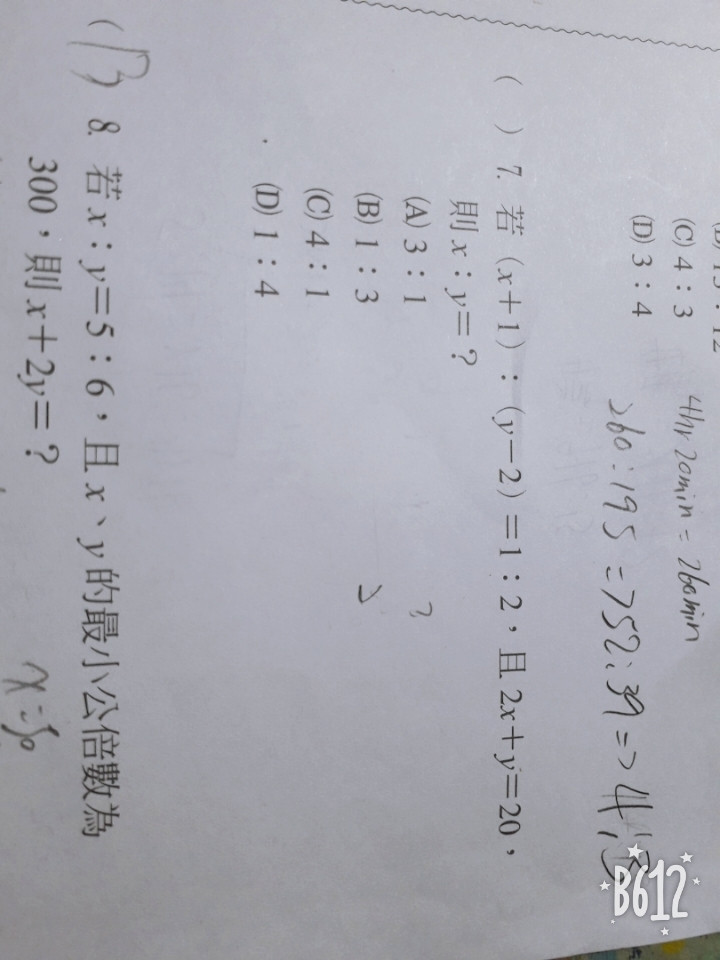 (C) 4：3
(D) 3：4
4hr 20min = 260min
260：195 => 52：39 => 4：3
(　) 7. 若（x＋1）：（y－2）＝1：2，且 2x＋y＝20，
則 x：y＝？
(A) 3：1
(B) 1：3
(C) 4：1
(D) 1：4
8. 若 x：y＝5：6，且 x、y 的最小公倍數為
300，則 x＋2y＝？
x=50
B612